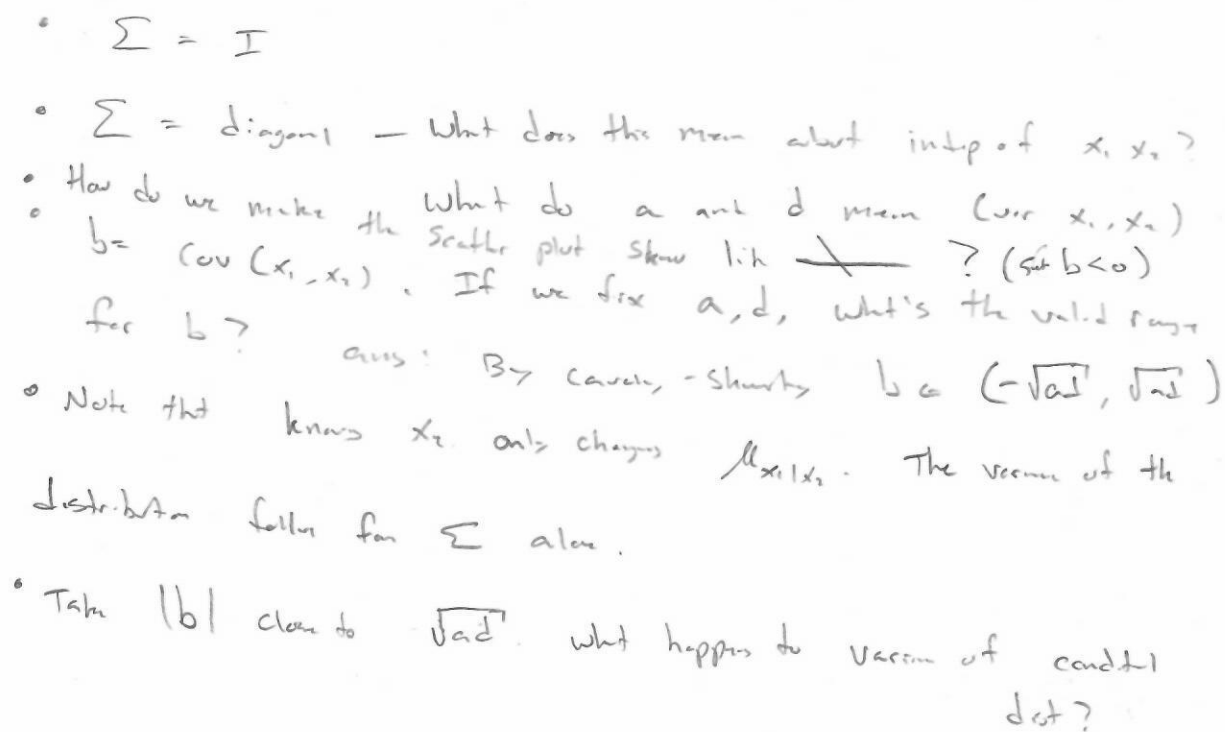 • Σ = I
• Σ = diagonal — What does this mean about indep of x₁ x₂?
What do a and d mean (var x₁, x₂)
• How do we make the scatter plot skew lik ? (set b<0)
• b = Cov(x₁, x₂). If we fix a, d, what's the valid range
for b? ans: By Cauchy-Shwartz b ∈ (-√ad, √ad)
• Note that knowing x₂ only changes μx₁|x₂. The variance of the
distribution follows from Σ alone.
• Take |b| close to √ad. what happens to variance of conditional
dist?